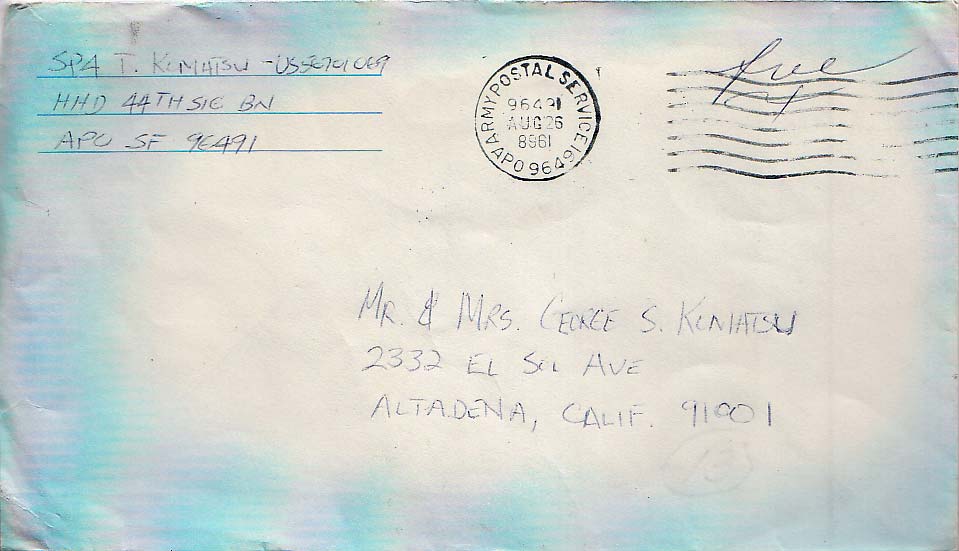 SP4 T. KOMATSU - US56701069
HHD 44TH SIG BN
APO SF 96491
ARMY POSTAL SERVICE
96491
AUG 26
8961
APO 96491
free
MR. & MRS. GEORGE S. KOMATSU
2332 EL SOL AVE
ALTADENA, CALIF. 91001
13